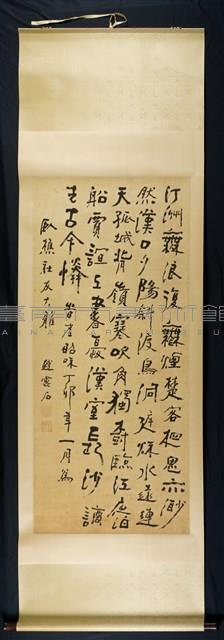 汀洲無浪復無煙楚客相思亦渺
然漢口夕陽斜渡鳥洞庭秋水遠連
天孤城背嶺寒吹角獨戍臨江夜泊
船賈誼上書憂漢室長沙謫
去古今憐 丁卯年一月為
臥樵社友大雅 趙雲石